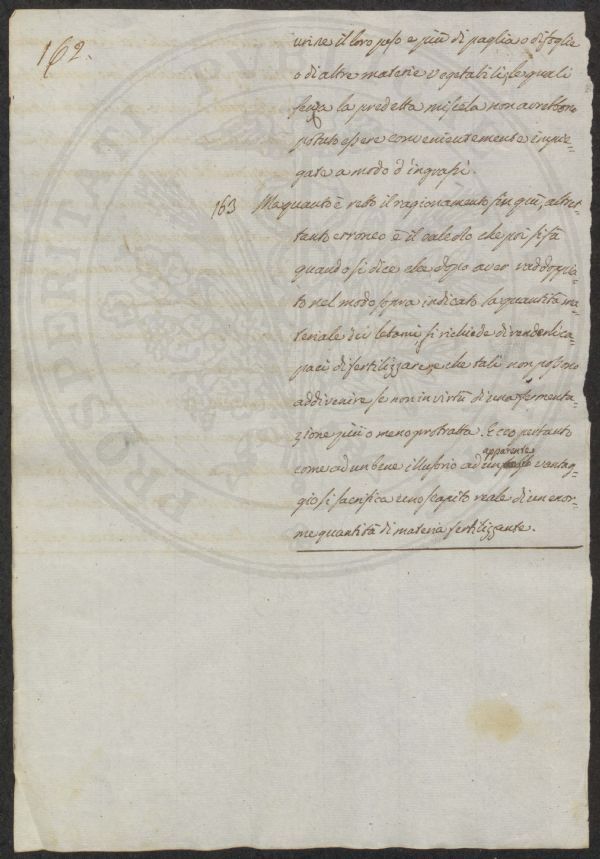 162.
urine il loro peso e più di paglia o di foglie
o di altre materie vegetabili, le quali
senza la predetta miscela non avrebbono
potuto essere convenientemente impie-
gate a modo d'ingrassi.
163 Ma quanto è retto il ragionamento fin quì, altret-
tanto erroneo è il calcolo che poi si fà
quando si dice che dopo aver raddoppia-
to nel modo sopra indicato la quantità ma-
teriale dei letami, si richiede di renderli ca-
paci di fertilizzare, e che tali non possono
addivenire se non in virtù di una fermenta-
zione più o meno protratta. Ecco pertanto
apparente
come ad un bene illusorio ad un vantag-
gio si sacrifica uno scapito reale di un enor-
me quantità di materia fertilizzante.
PROSPERITATI PUBLICAE